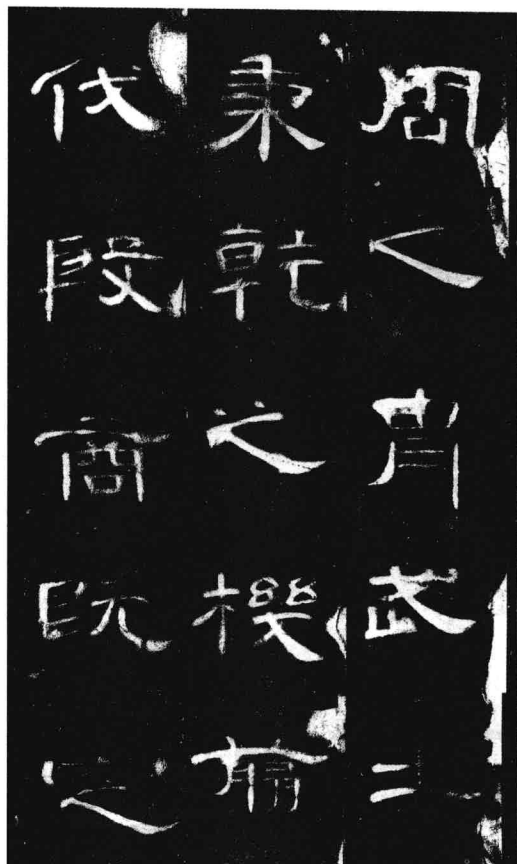 周之胄武王
秉乾之機翦
伐殷商既定